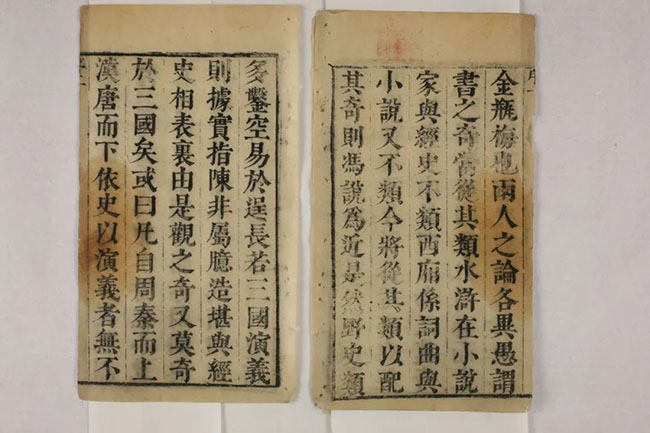 金瓶梅也兩人之論各異愚謂
書之奇當從其類水滸在小說
家與經史不類西廂係詞曲與
小說又不類今將從其類以配
其奇則馮說爲近是然野史類
多鑿空易於逞長若三國演義
則據實指陳非屬臆造堪與經
史相表裏由是觀之奇又莫奇
於三國矣或曰凡自周秦而上
漢唐而下依史以演義者無不